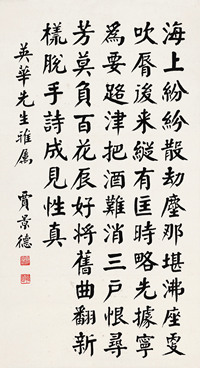 海上紛紛散劫塵那堪沸座更
吹唇後来縱有匡時略先據寧
為要路津把酒難消三戶恨尋
芳莫負百花辰好將舊曲翻新
樣脫手詩成見性真
英華先生雅属
賈景德